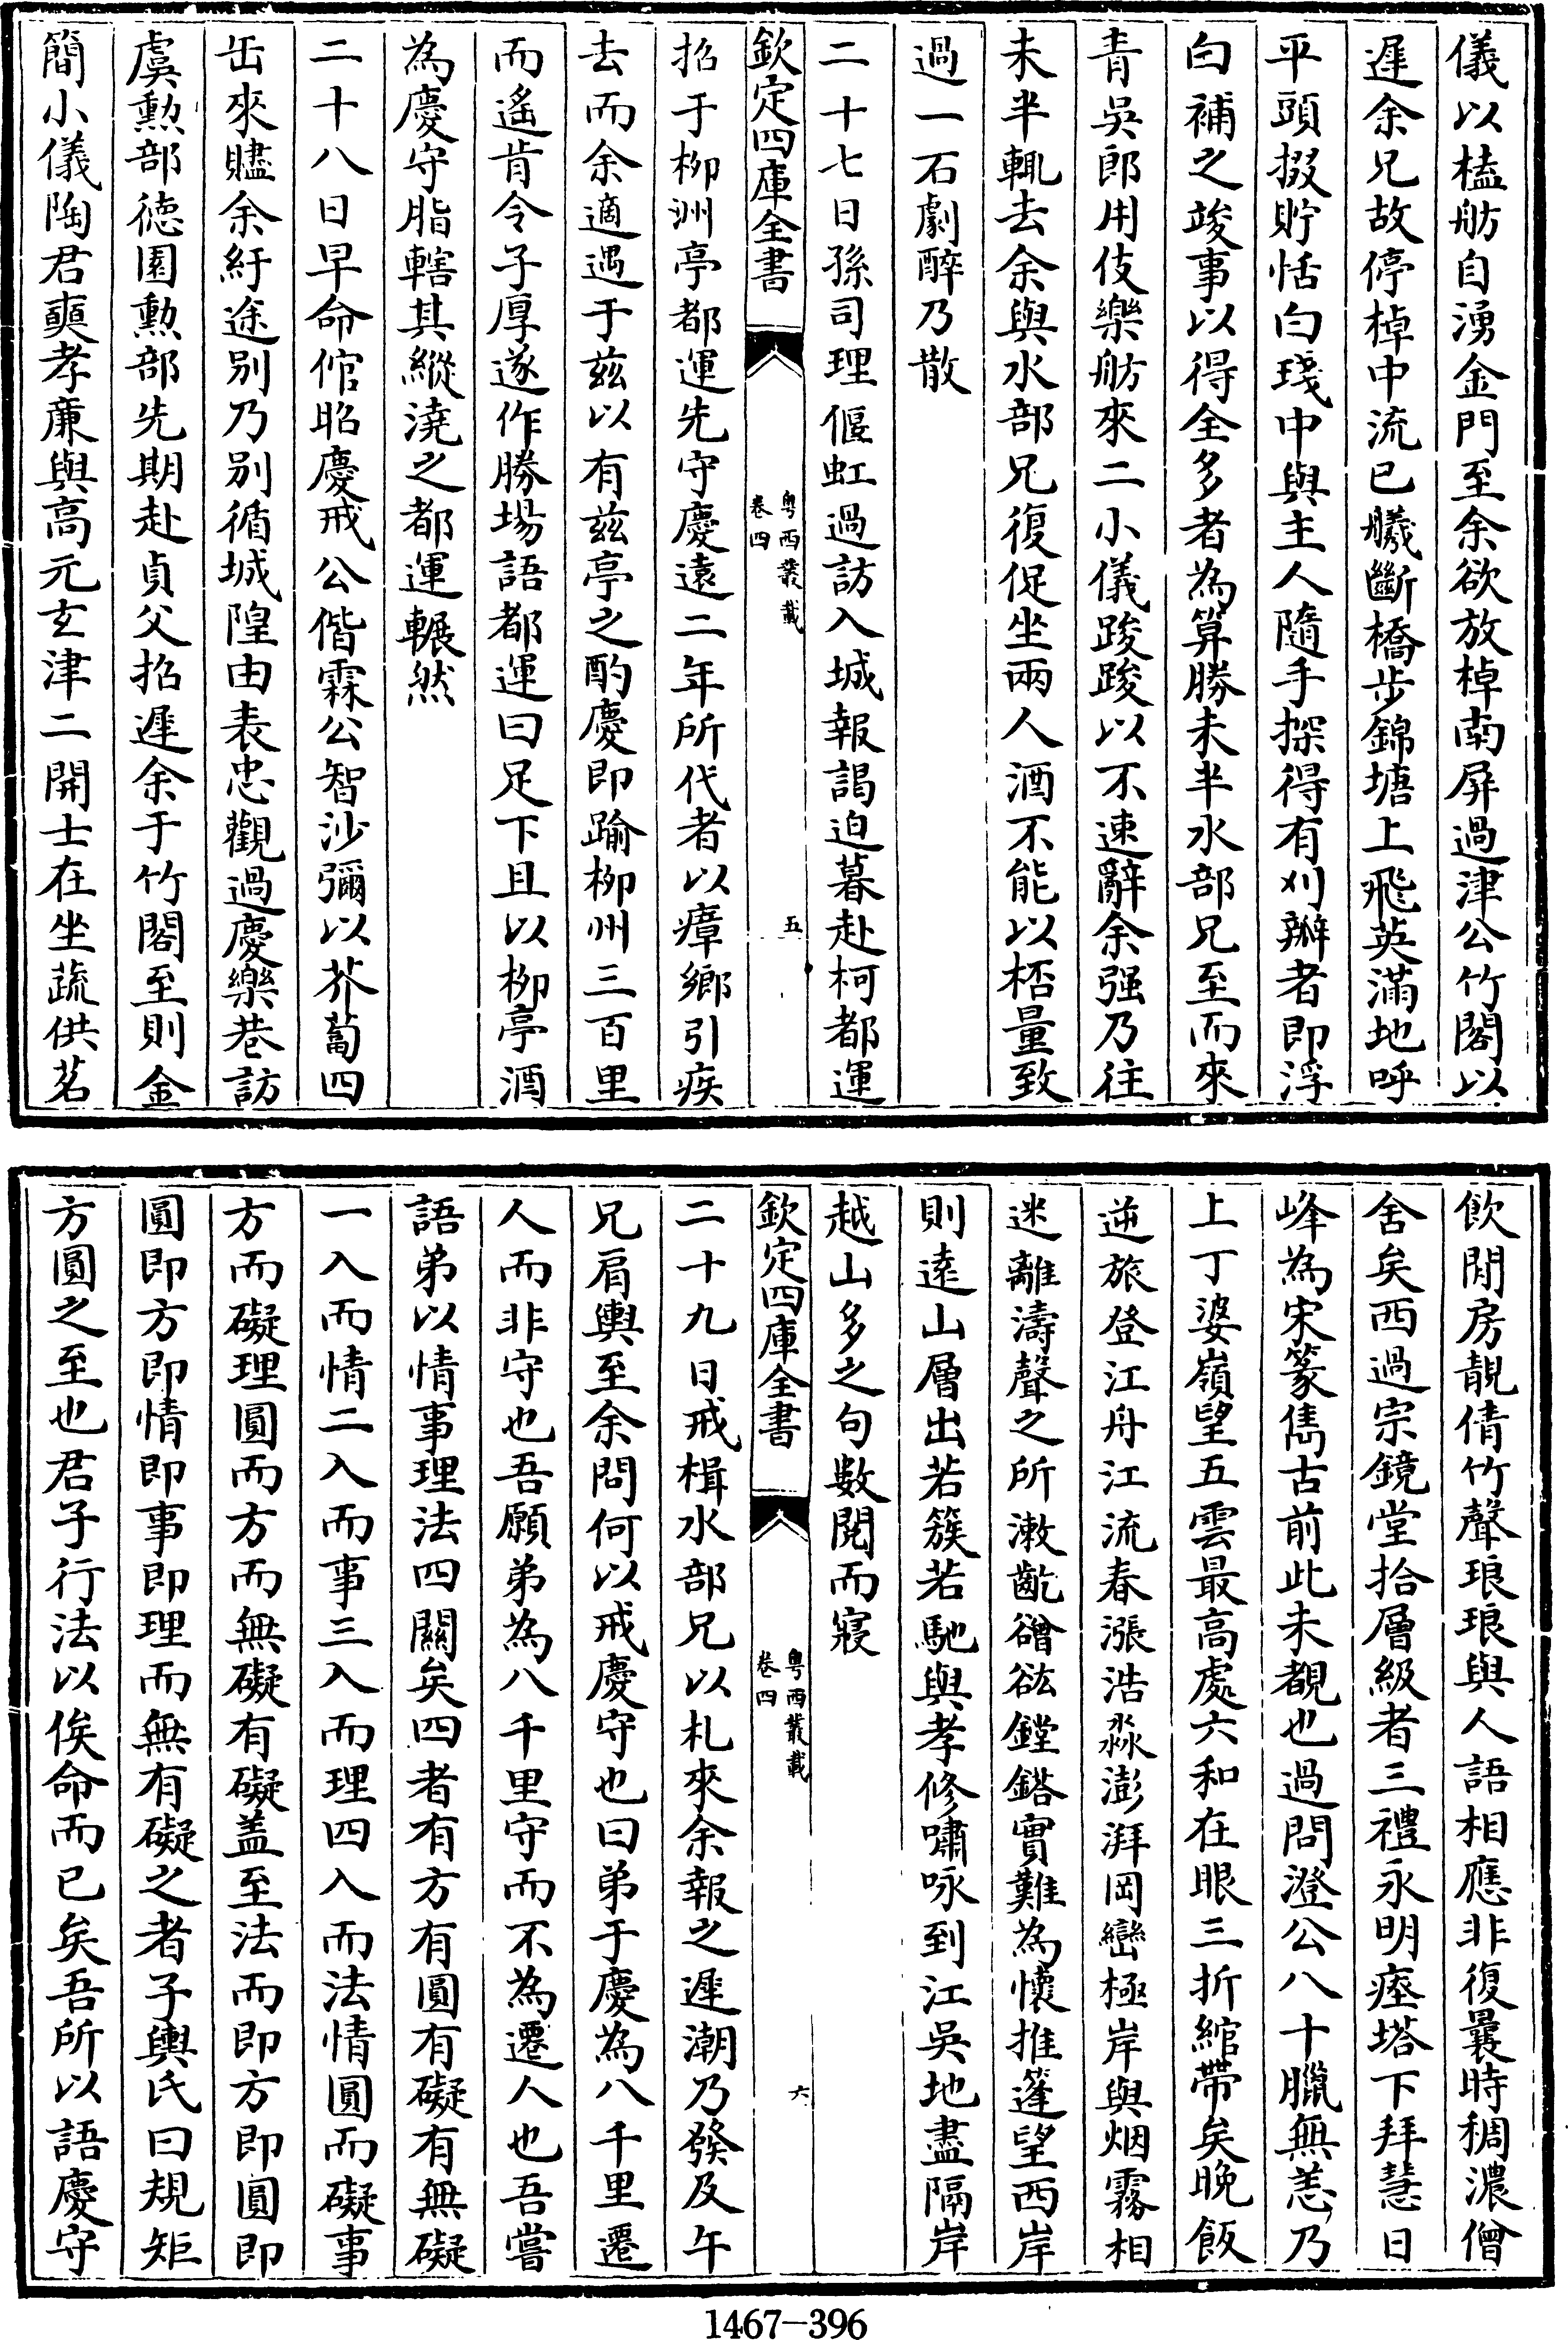 儀以榼舫自湧金門至余欲放棹南屏過津公竹閣以
遲余兄故停棹中流已艤斷橋步錦塘上飛英滿地呼
平頭掇貯恬白琖中與主人隨手探得有刈瓣者即浮
白補之竣事以得全多者為算勝未半水部兄至而來
青吳郎用伎樂舫來二小儀踆踆以不速辭余强乃往
未半輒去余與水部兄復促坐兩人酒不能以桮量致
過一石劇醉乃散
二十七日孫司理偃虹過訪入城報謁迫暮赴柯都運
欽定四庫全書
粵西叢載
卷四
五
招于柳洲亭都運先守慶遠二年所代者以瘴鄉引疾
去而余適遇于兹以有兹亭之酌慶即踰柳州三百里
而遙肯令子厚遂作勝場語都運曰足下且以柳亭酒
為慶守脂轄其縱澆之都運冁然
二十八日早命倌昭慶戒公偕霖公智沙彌以芥蔔四
缶來贐余紆途别乃别循城隍由表忠觀過慶樂巷訪
虞勲部徳園勲部先期赴貞父招遲余于竹閣至則金
簡小儀陶君奭孝廉與高元玄津二開士在坐蔬供茗
飲閒房靚倩竹聲琅琅與人語相應非復曩時稠濃僧
舍矣西過宗鏡堂拾層級者三禮永明瘞塔下拜慧日
峰為宋篆雋古前此未覩也過問澄公八十臘無恙乃
上丁婆嶺望五雲最高處六和在眼三折綰帶矣晚飯
逆旅登江舟江流春漲浩淼澎湃岡巒極岸與烟霧相
迷離濤聲之所潄齕磳谹鏜鎝實難為懷推篷望西岸
則遠山層出若簇若馳與孝修嘯咏到江吳地盡隔岸
越山多之句數閱而寢
欽定四庫全書
粵西叢載
卷四
六
二十九日戒楫水部兄以札來余報之遲潮乃發及午
兄肩輿至余問何以戒慶守也曰弟于慶為八千里遷
人而非守也吾願弟為八千里守而不為遷人也吾嘗
語弟以情事理法四闗矣四者有方有圓有礙有無礙
一入而情二入而事三入而理四入而法情圓而礙事
方而礙理圓而方而無礙有礙盖至法而即方即圓即
圓即方即情即事即理而無有礙之者子輿氏曰規矩
方圓之至也君子行法以俟命而已矣吾所以語慶守
1467-396